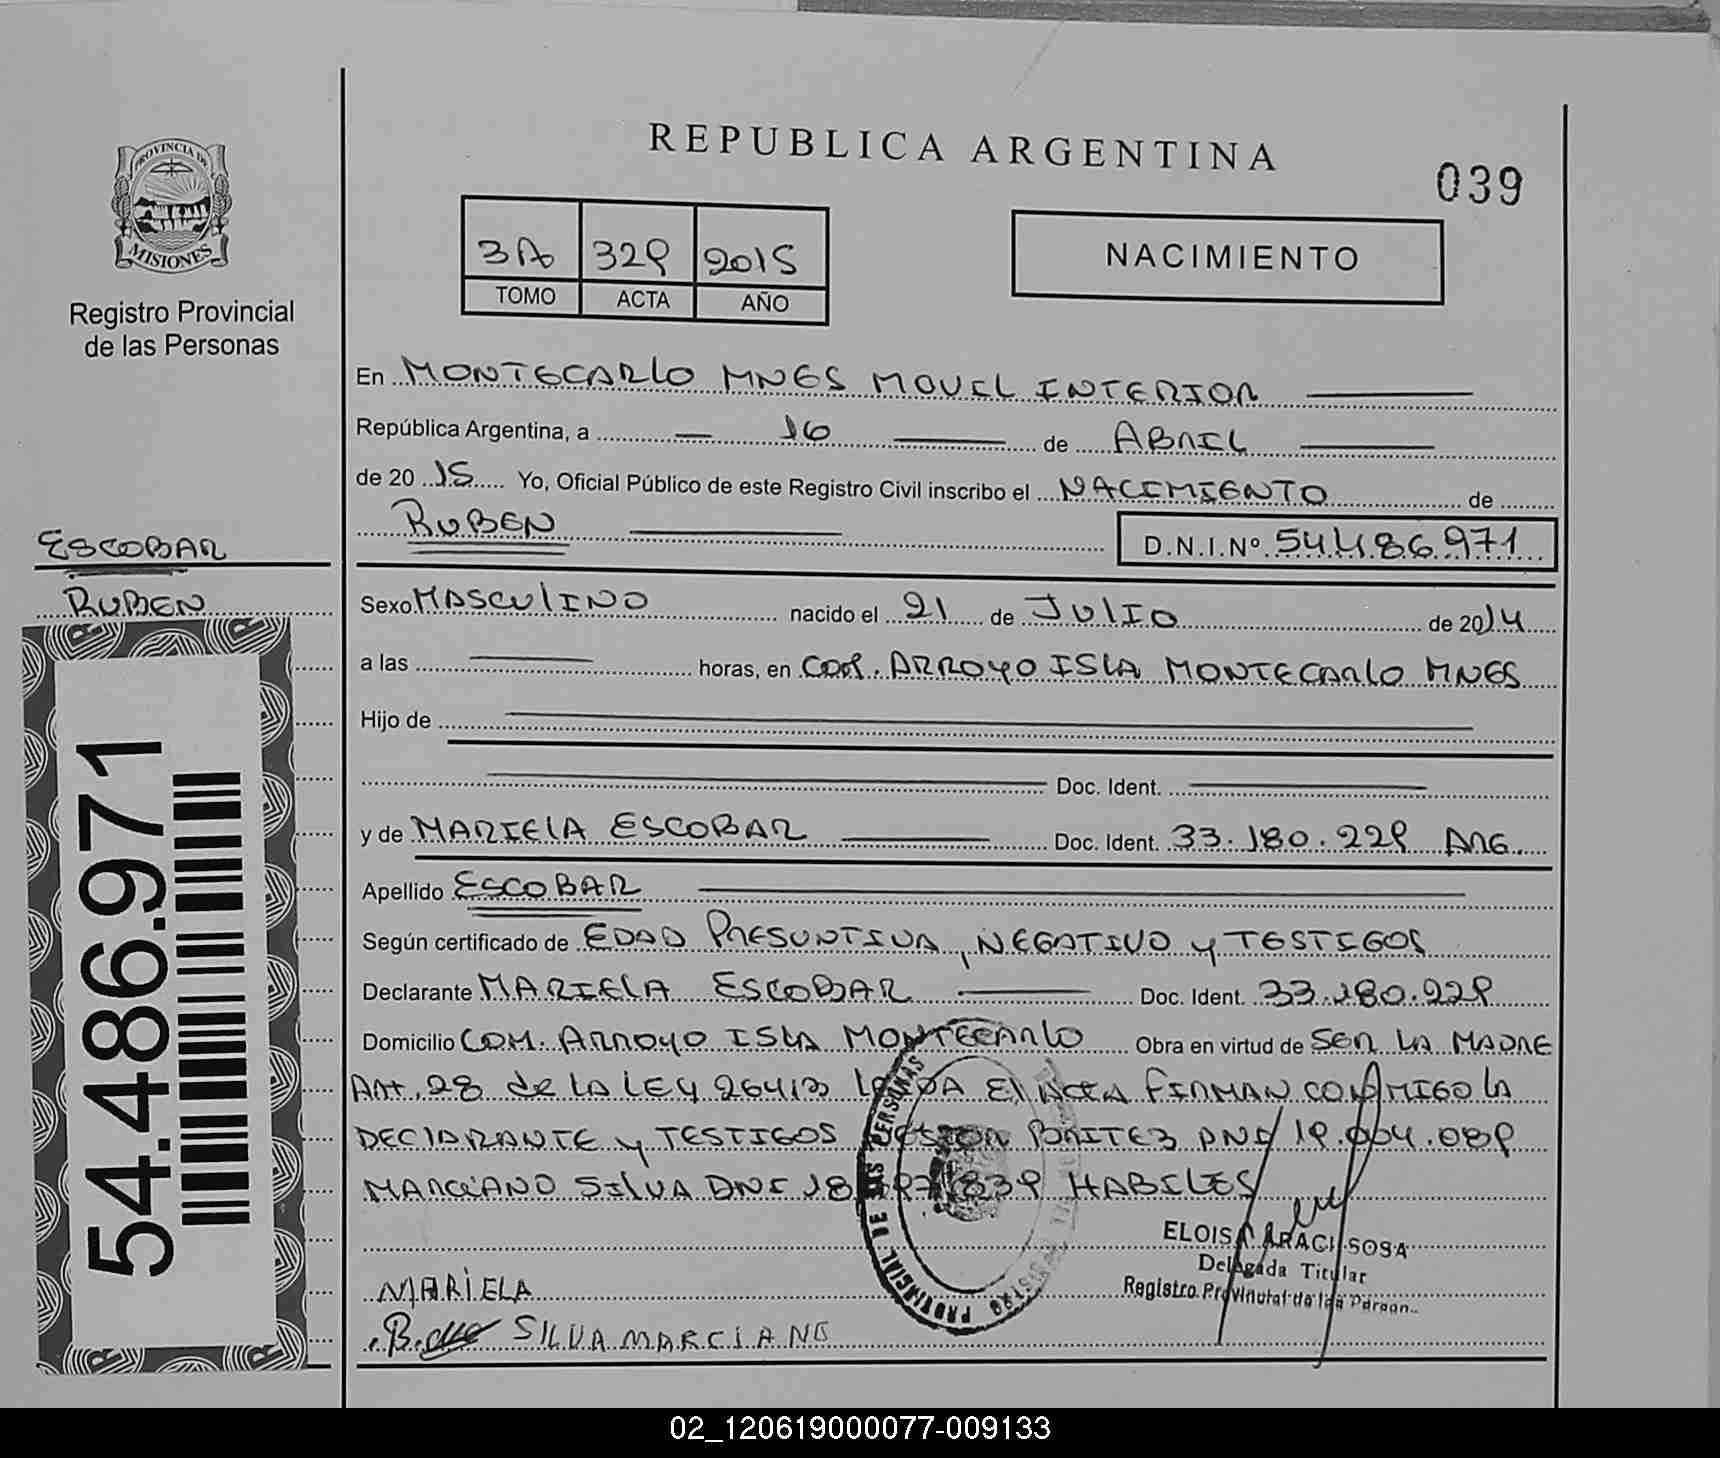 REPUBLICA ARGENTINA
039
PROVINCIA DE
MISIONES
Registro Provincial
de las Personas
3A 329 2015
TOMO ACTA AÑO
NACIMIENTO
En MONTECARLO MNES MOVIL INTERIOR
República Argentina, a 16 de ABRIL
de 20 15 Yo, Oficial Público de este Registro Civil inscribo el NACIMIENTO de
RUBEN D.N.I.Nº 54.486.971
ESCOBAR
RUBEN
Sexo MASCULINO nacido el 21 de JULIO de 2014
a las horas, en COM. ARROYO ISLA MONTECARLO MNES
Hijo de
Doc. Ident.
y de MARIELA ESCOBAR Doc. Ident. 33.180.229 ARG.
Apellido ESCOBAR
Según certificado de EDAD PRESUNTIVA, NEGATIVO y TESTIGOS
Declarante MARIELA ESCOBAR Doc. Ident. 33.180.229
Domicilio COM. ARROYO ISLA MONTECARLO Obra en virtud de SER LA MADRE
Art. 28 de LA LEY 26413 LEIDA El ACTA FIRMAN CONMIGO LA
DECLARANTE y TESTIGOS BRITEZ DNI 19.004.089
MARCIANO SILVA DNI HABILES
ELOISA ARACI SOSA
Delegada Titular
Registro Provincial de las Person.
MARIELA
SILVA MARCIANO
PROVINCIAL DE LAS PERSONAS
54.486.971
02_120619000077-009133